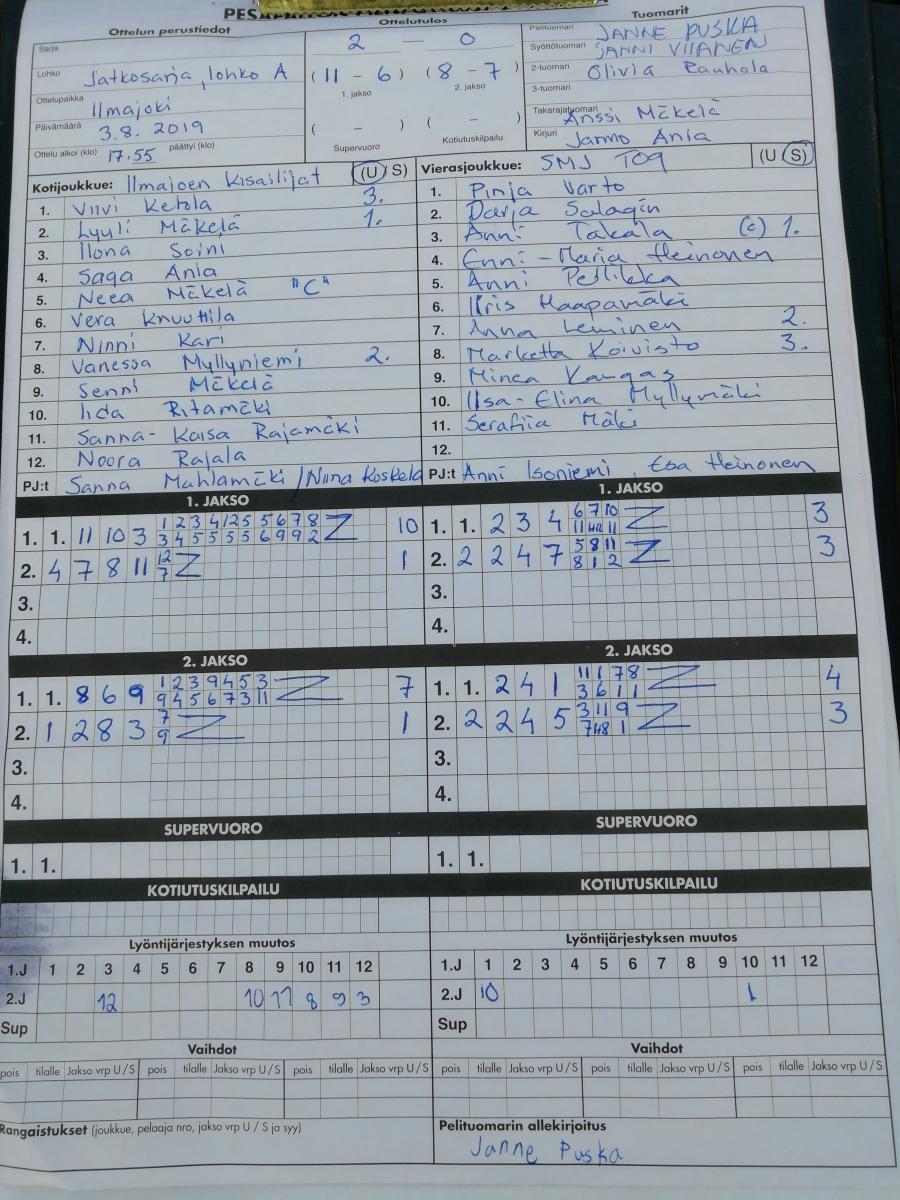 PES
Ottelun perustiedot
Ottelutulos
Tuomarit
Sarja
2 — 0
Pelituomari JANNE PUSKA
Syöttötuomari
Lohko Jatkosarja, lohko A
(11 - 6) (8 - 7)
1. jakso 2. jakso
2-tuomari Olivia Rauhala
3-tuomari
Ottelupaikka Ilmajoki
Takarajatuomari Anssi Mäkelä
Päivämäärä 3.8. 2019
( - ) ( - )
Supervuoro Kotiutuskilpailu
Kirjuri Jarmo Ania
Ottelu alkoi (klo) 17.55 päättyi (klo)
Kotijoukkue: Ilmajoen Kisailijat (U S)
1. Viivi Ketola 3.
2. Lyyli Mäkelä 1.
3. Ilona Soini
4. Saga Ania
5. Neea Mäkelä "C"
6. Vera Knuuttila
7. Ninni Kari
8. Vanessa Myllyniemi 2.
9. Senni Mäkelä
10. Iida Ritamäki
11. Sanna-Kaisa Rajamäki
12. Noora Rajala
PJ:t Sanna Mahlamäki / Niina Koskela
Vierasjoukkue: SMJ T09 (U S)
1. Pinja Varto
2. Darja Salagin
3. Anni Takala (c) 1.
4. Enni-Maria Heinonen
5. Anni
6. Iiris Haapamäki
7. Anna Leminen 2.
8. Marketta Koivisto 3.
9. Minea Kangas
10. Iisa-Elina Myllymäki
11. Serafiia Mäki
12.
PJ:t Anni Isoniemi, Esa Heinonen
1. JAKSO
1. 1. 11 10 3 1 2 3 4 12 5 5 6 7 8 10
3 4 5 5 5 5 6 9 9 2
2. 4 7 8 11 12 1
7
3.
4.
1. JAKSO
1. 1. 2 3 4 6 7 10 3
2. 2 2 4 7 5 8 11 3
8 1 2
3.
4.
2. JAKSO
1. 1. 8 6 9 1 2 3 9 4 5 3 7
9 4 5 6 7 3 11
2. 1 2 8 3 7 1
9
3.
4.
2. JAKSO
1. 1. 2 4 1 11 1 7 8 4
3 6 1 1
2. 2 2 4 5 3 11 9 3
3.
4.
SUPERVUORO
1. 1.
SUPERVUORO
1. 1.
KOTIUTUSKILPAILU
KOTIUTUSKILPAILU
Lyöntijärjestyksen muutos
1.J 1 2 3 4 5 6 7 8 9 10 11 12
2.J 12 10 11 8 9 3
Sup
Lyöntijärjestyksen muutos
1.J 1 2 3 4 5 6 7 8 9 10 11 12
2.J 10 1
Sup
Vaihdot
pois tilalle Jakso vrp U / S pois tilalle Jakso vrp U / S pois tilalle Jakso vrp U / S
Vaihdot
pois tilalle Jakso vrp U / S pois tilalle Jakso vrp U / S pois tilalle Jakso vrp U / S
Rangaistukset (joukkue, pelaaja nro, jakso vrp U / S ja syy)
Pelituomarin allekirjoitus
Janne Puska